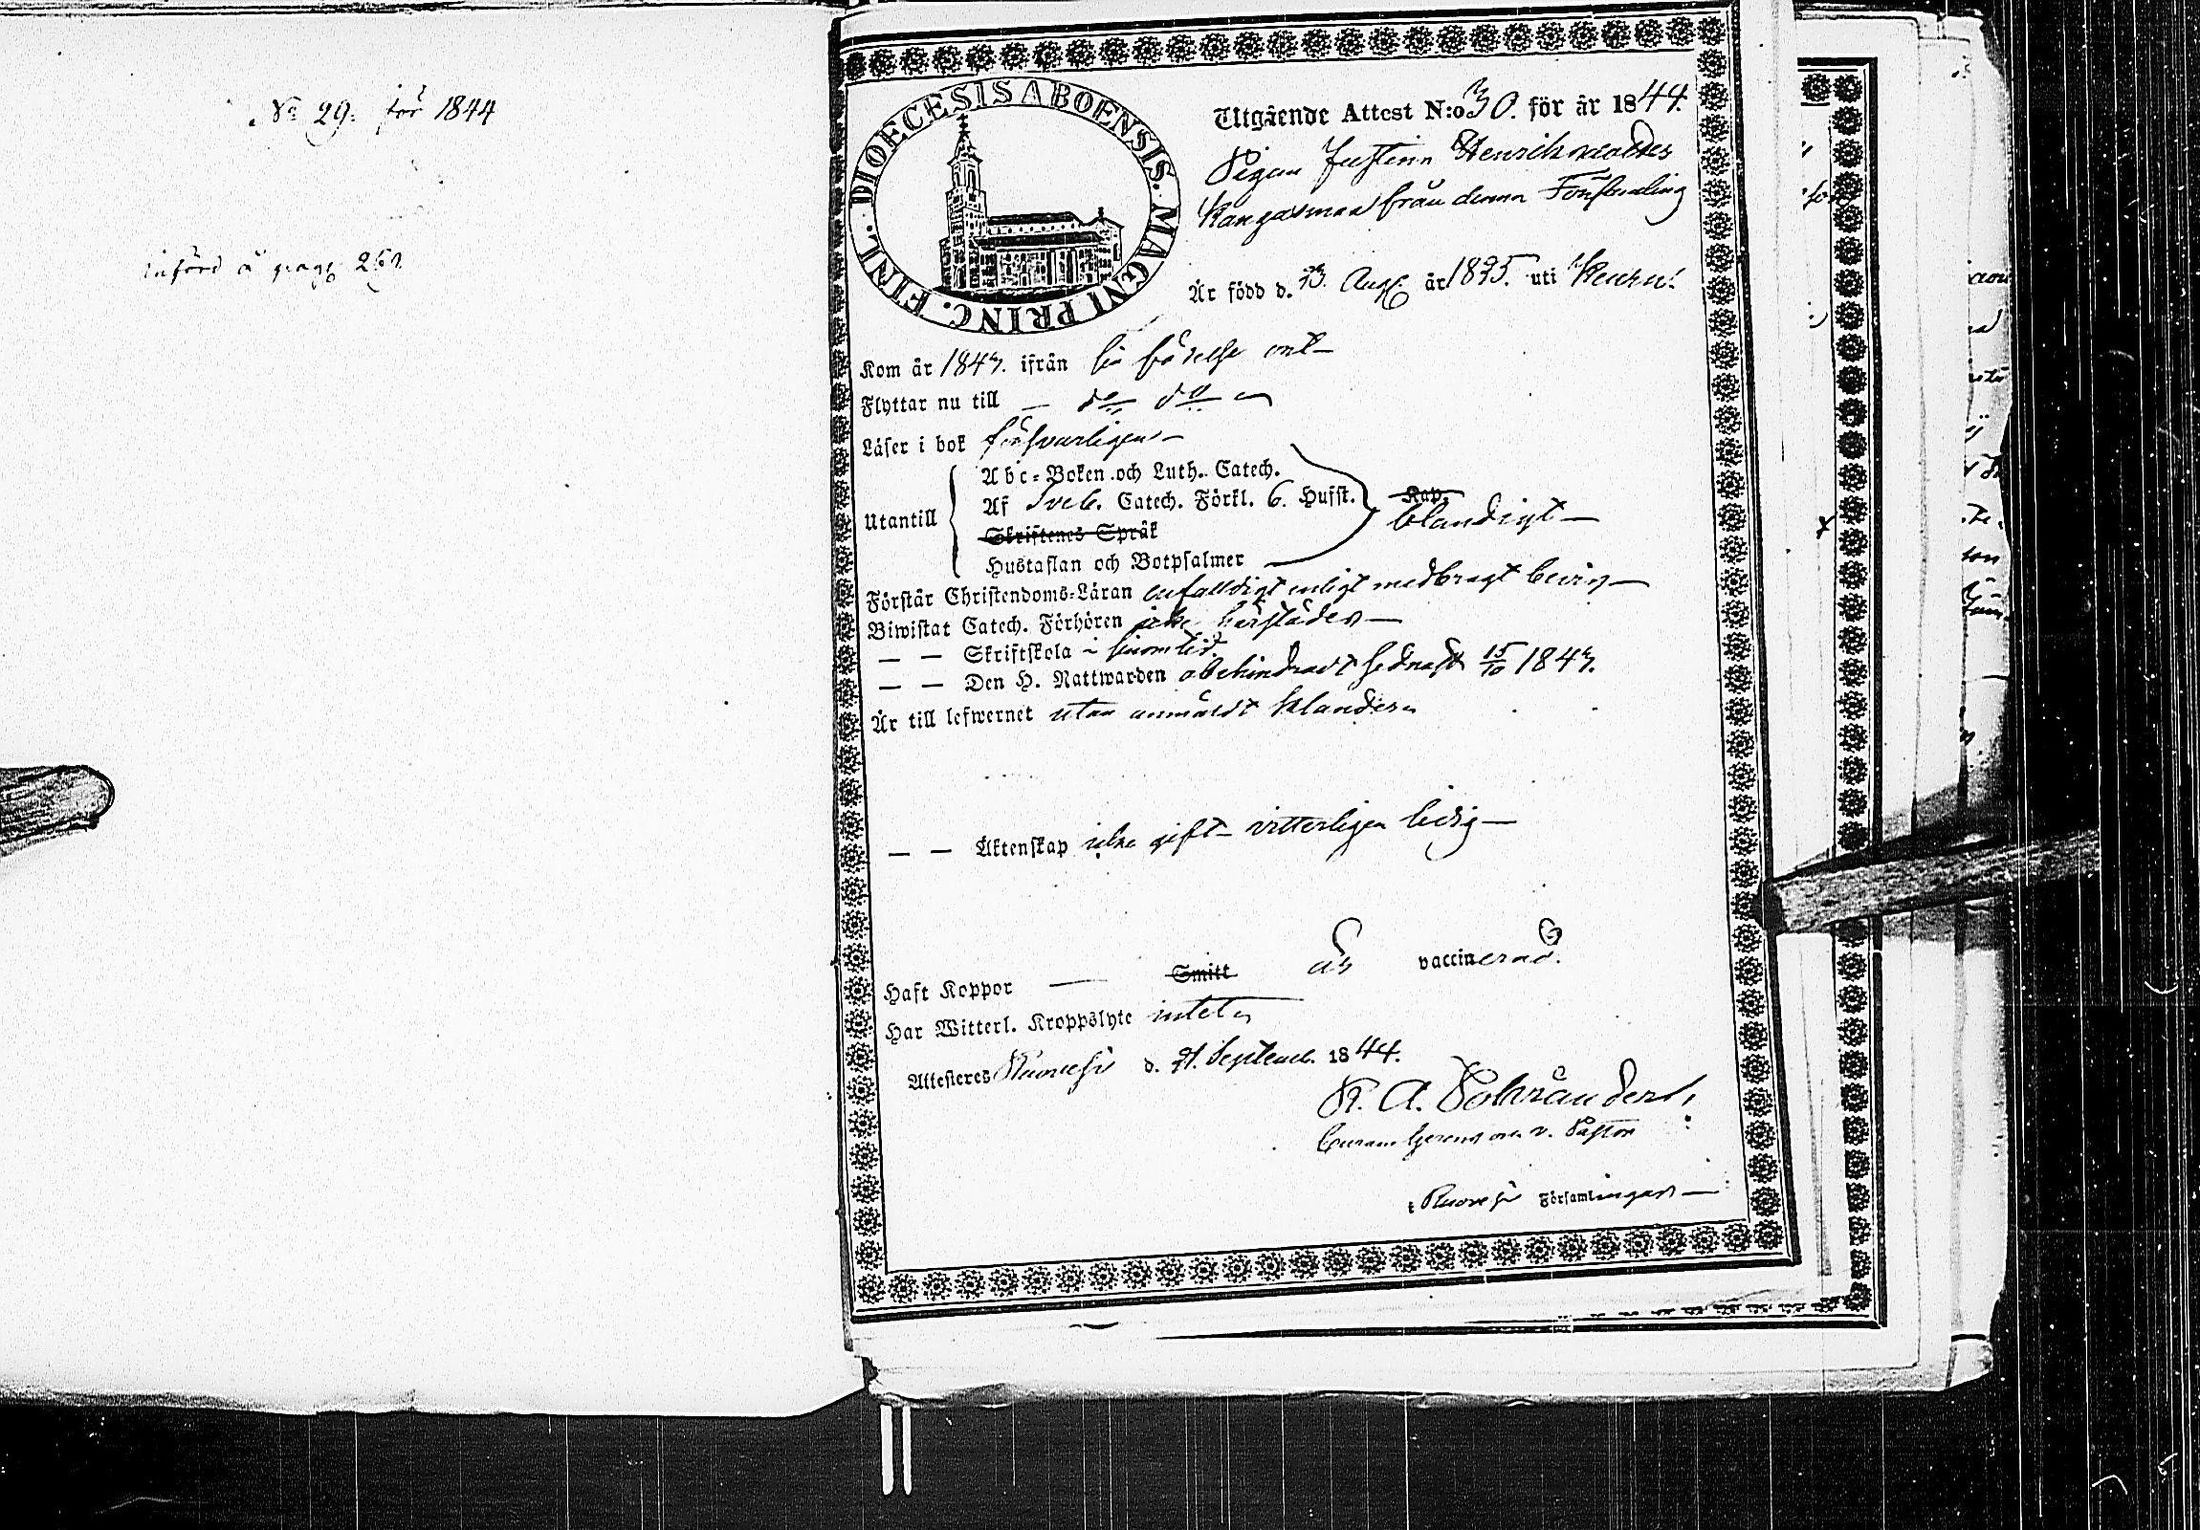 No 29. för 1844
införd å pag. 
DIOECESIS ABOENSIS. MAGNI PRINC. FINL.
Utgående Attest N:o 30. för år 1844.
Pigan Justina Henriksdotter
Kangasmaa från denna Församling
Är född d. 23. Aug. år 1825. uti Keuru.
Kom år 1843. ifrån sin födelse ort
Flyttar nu till — do do
Läser i bok försvarligen
Abc-Boken och Luth. Catech.
Utantill Af Sveb. Catech. Förkl. 6. Hufst. Kap. blandigt
Skriftenes Språk
Hustaflan och Botpsalmer
Förstår Christendoms-Läran enfalldigt enligt medbragt bevis
Biwistat Catech. Förhören icke härstädes
— — Skriftskola i sinom tid.
— — Den H. Nattwarden obehindradt sednast 15/10 1843.
Är till lefwernet utan anmäldt klander
— — Äktenskap icke gift vitterligen ledig
Haft Koppor — Smitt är vaccinerad.
Har Witterl. Kroppslyte intet
Attesteres Ruovesi d. 21. Septemb. 1844.
K. A.
v. Pastor
i Ruovesi Församlingar